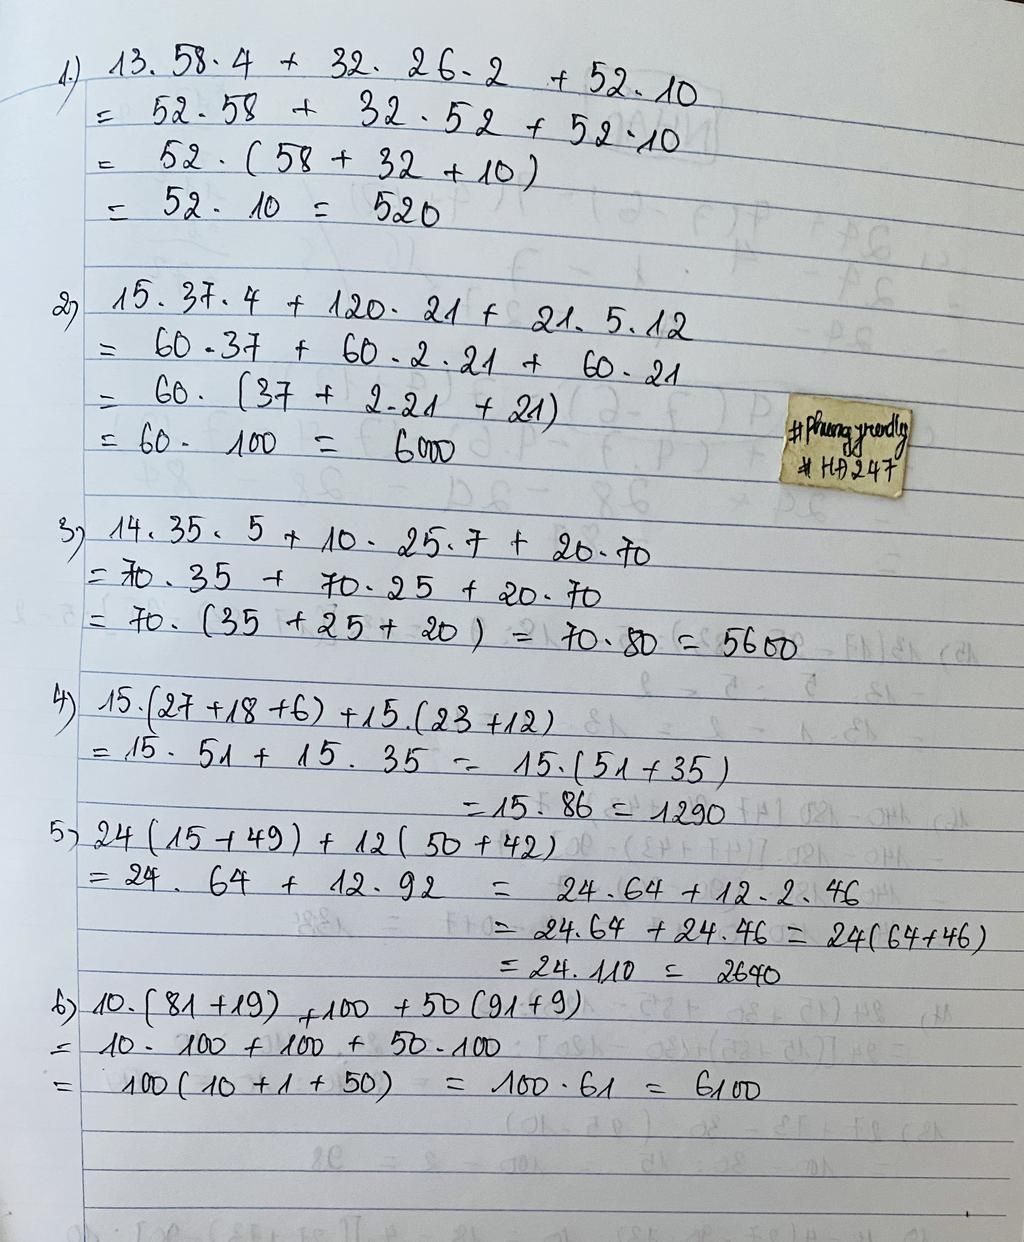 1.) 13. 58. 4 + 32. 26. 2 + 52. 10
= 52. 58 + 32. 52 + 52. 10
= 52. (58 + 32 + 10)
= 52. 10 = 520
2) 15. 37. 4 + 120. 21 + 21. 5. 12
= 60. 37 + 60. 2. 21 + 60. 21
= 60. (37 + 2. 21 + 21)
= 60. 100 = 6000
#HĐ247
3) 14. 35. 5 + 10. 25. 7 + 20. 70
= 70. 35 + 70. 25 + 20. 70
= 70. (35 + 25 + 20) = 70. 80 = 5600
4) 15. (27 + 18 + 6) + 15. (23 + 12)
= 15. 51 + 15. 35 = 15. (51 + 35)
= 15. 86 = 1290
5) 24 (15 + 49) + 12 (50 + 42)
= 24. 64 + 12. 92 = 24. 64 + 12. 2. 46
= 24. 64 + 24. 46 = 24 (64 + 46)
= 24. 110 = 2640
6) 10. (81 + 19) + 100 + 50 (91 + 9)
= 10. 100 + 100 + 50. 100
= 100 (10 + 1 + 50) = 100. 61 = 6100